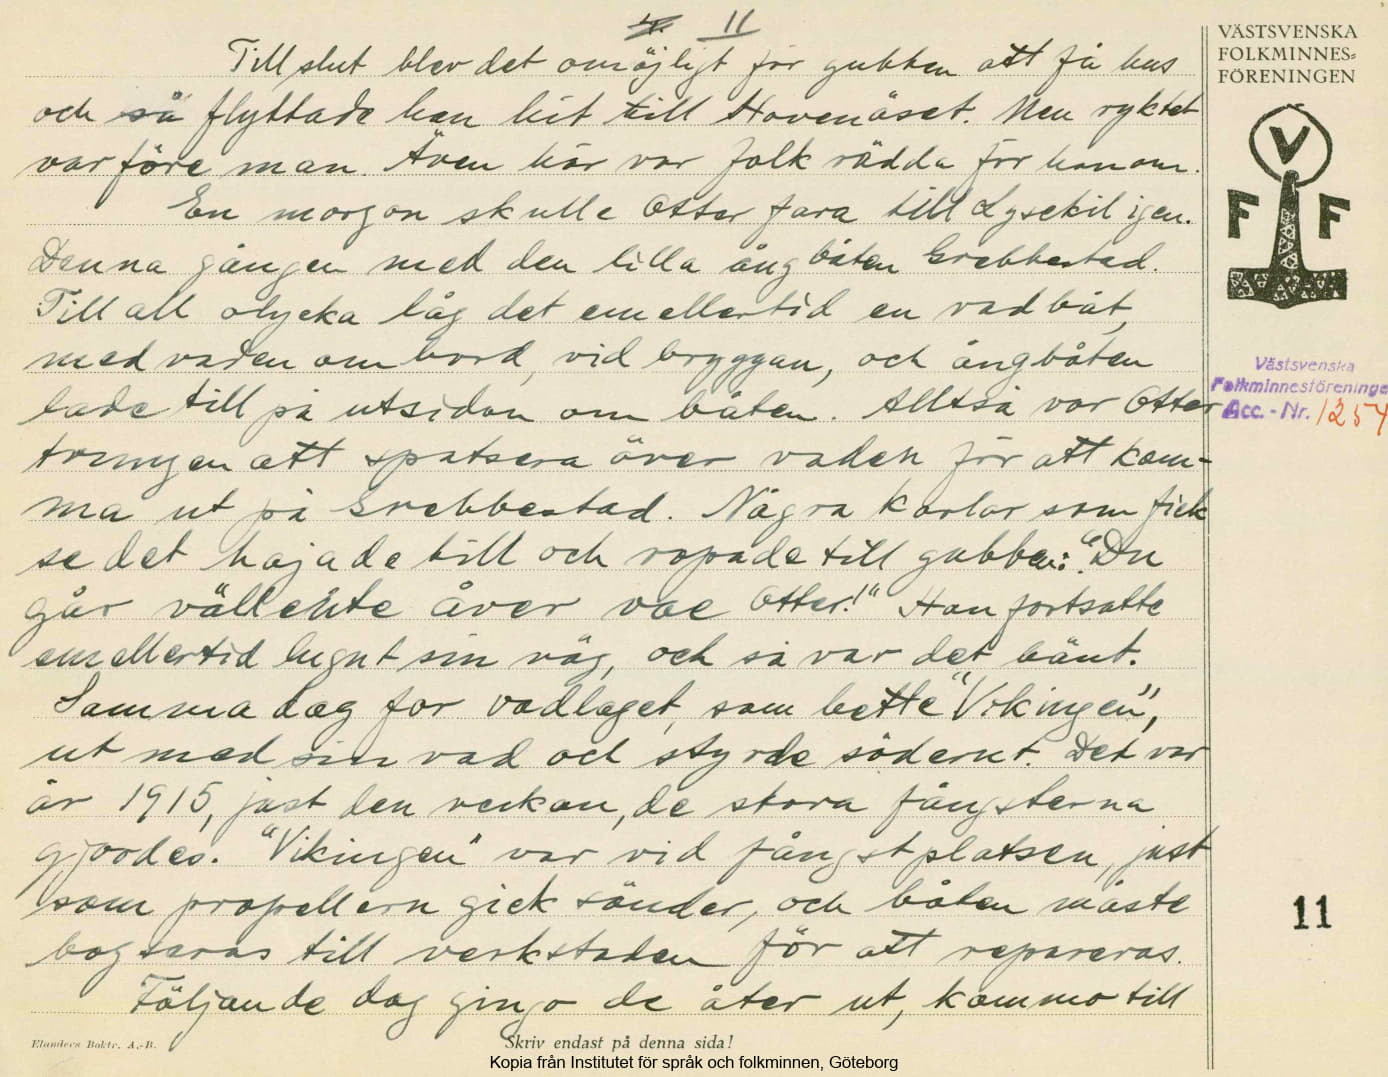 11
Till slut blev det omöjligt för gubben att få hus
och så flyttade han hit till Hovenäset. Men ryktet
var före man. Även här var folk rädda för honom.
En morgon skulle Otter fara till Lysekil igen.
Denna gången med den lilla ångbåten Grebbestad.
Till all olycka låg det emellertid en vadbåt,
med vaden om bord, vid bryggan, och ångbåten
lade till på utsidan om båten. Alltså var Otter
tvungen att spatsera över vaden för att kom-
ma ut på Grebbestad. Några karlar som fick
se det hajade till och ropade till gubben: "Du
går väll ente åver vae Otter!" Han fortsatte
emellertid lugnt sin väg, och så var det hänt.
Samma dag for vadlaget, som hette "Vikingen",
ut med sin vad och styrde söderut. Det var
år 1915, just den veckan, de stora fångsterna
gjordes. "Vikingen" var vid fångstplatsen, just
som propellern gick sönder, och båten måste
bogseras till verkstaden för att repareras.
Följande dag gingo de åter ut, kommo till
Elanders Boktr. A.-B.
Skriv endast på denna sida!
Kopia från Institutet för språk och folkminnen, Göteborg
VÄSTSVENSKA
FOLKMINNES=
FÖRENINGEN
V
F F
Västsvenska
Folkminnesföreningen
Acc. - Nr. 1254
11